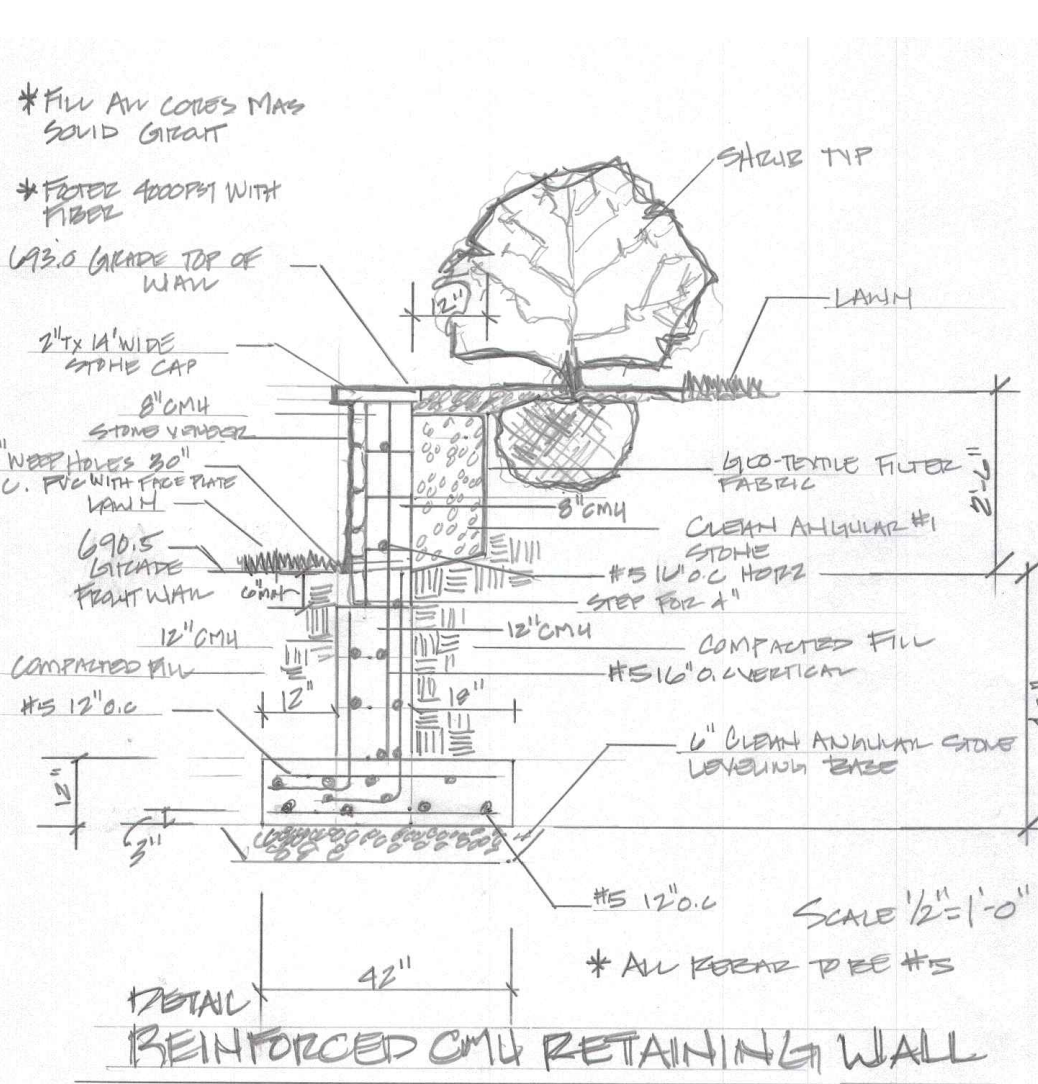 * FILL ALL CORES MAS
SOLID GROUT
* FOOTER 4000PSI WITH
FIBER
693.0 GRADE TOP OF
WALL
2"Tx 14' WIDE
STONE CAP
8" CMU
STONE VENEER
" WEEP HOLES 30"
C. PVC WITH FACE PLATE
LAWN
690.5
GRADE
FRONT WALL
12" CMU
COMPACTED FILL
#5 12" O.C
SHRUB TYP
12"
LAWN
GEO-TEXTILE FILTER
FABRIC
2'-6"
8" CMU
CLEAN ANGULAR #1
STONE
#5 16" O.C HORZ
STEP FOR 4"
12" CMU
COMPACTED FILL
#5 16" O.C VERTICAL
12"
18"
6" CLEAN ANGULAR STONE
LEVELING BASE
12"
3"
#5 12" O.C
SCALE 1/2"=1'-0"
* ALL REBAR TO BE #5
42"
DETAIL
REINFORCED CMU RETAINING WALL